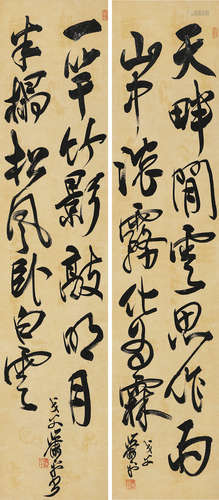 天畔閒雲思作雨
山中濃霧化為霖
戊午
一竿竹影敲明月
半榻松風臥白雲
戊午